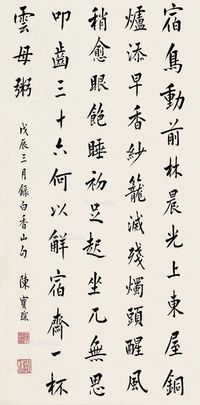 宿鳥動前林晨光上東屋銅
爐添早香紗籠滅殘燭頭醒風
稍愈眼飽睡初足起坐兀無思
叩齒三十六何以解宿齋一杯
雲母粥
戊辰三月錄白香山句
陳寶琛